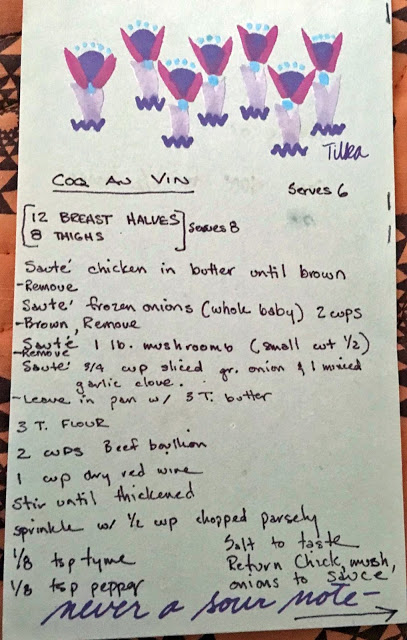 Tilka
COQ AU VIN Serves 6
12 BREAST HALVES
8 THIGHS Serves 8
Sauté chicken in butter until brown
-Remove
Sauté frozen onions (whole baby) 2 cups
-Brown, Remove
Sauté 1 lb. mushrooms (small cut 1/2)
-Remove
Sauté 3/4 cup sliced gr. onion & 1 minced
garlic clove.
-Leave in pan w/ 3 T. butter
3 T. FLOUR
2 CUPS Beef bouillon
1 cup dry red wine
Stir until thickened
sprinkle w/ 1/2 cup chopped parsely
1/8 tsp tyme
1/8 tsp pepper
Salt to taste
Return Chick, mush,
onions to sauce
never a sour note-